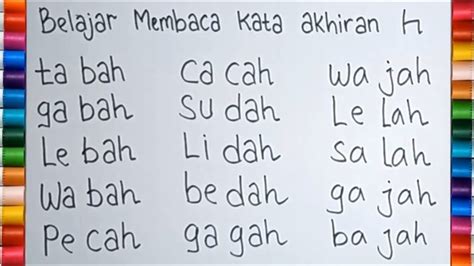 Belajar Membaca kata akhiran h
ta bah ca cah wa jah
ga bah su dah Le lah
Le bah Li dah sa lah
wa bah be dah ga jah
Pe cah ga gah ba jah